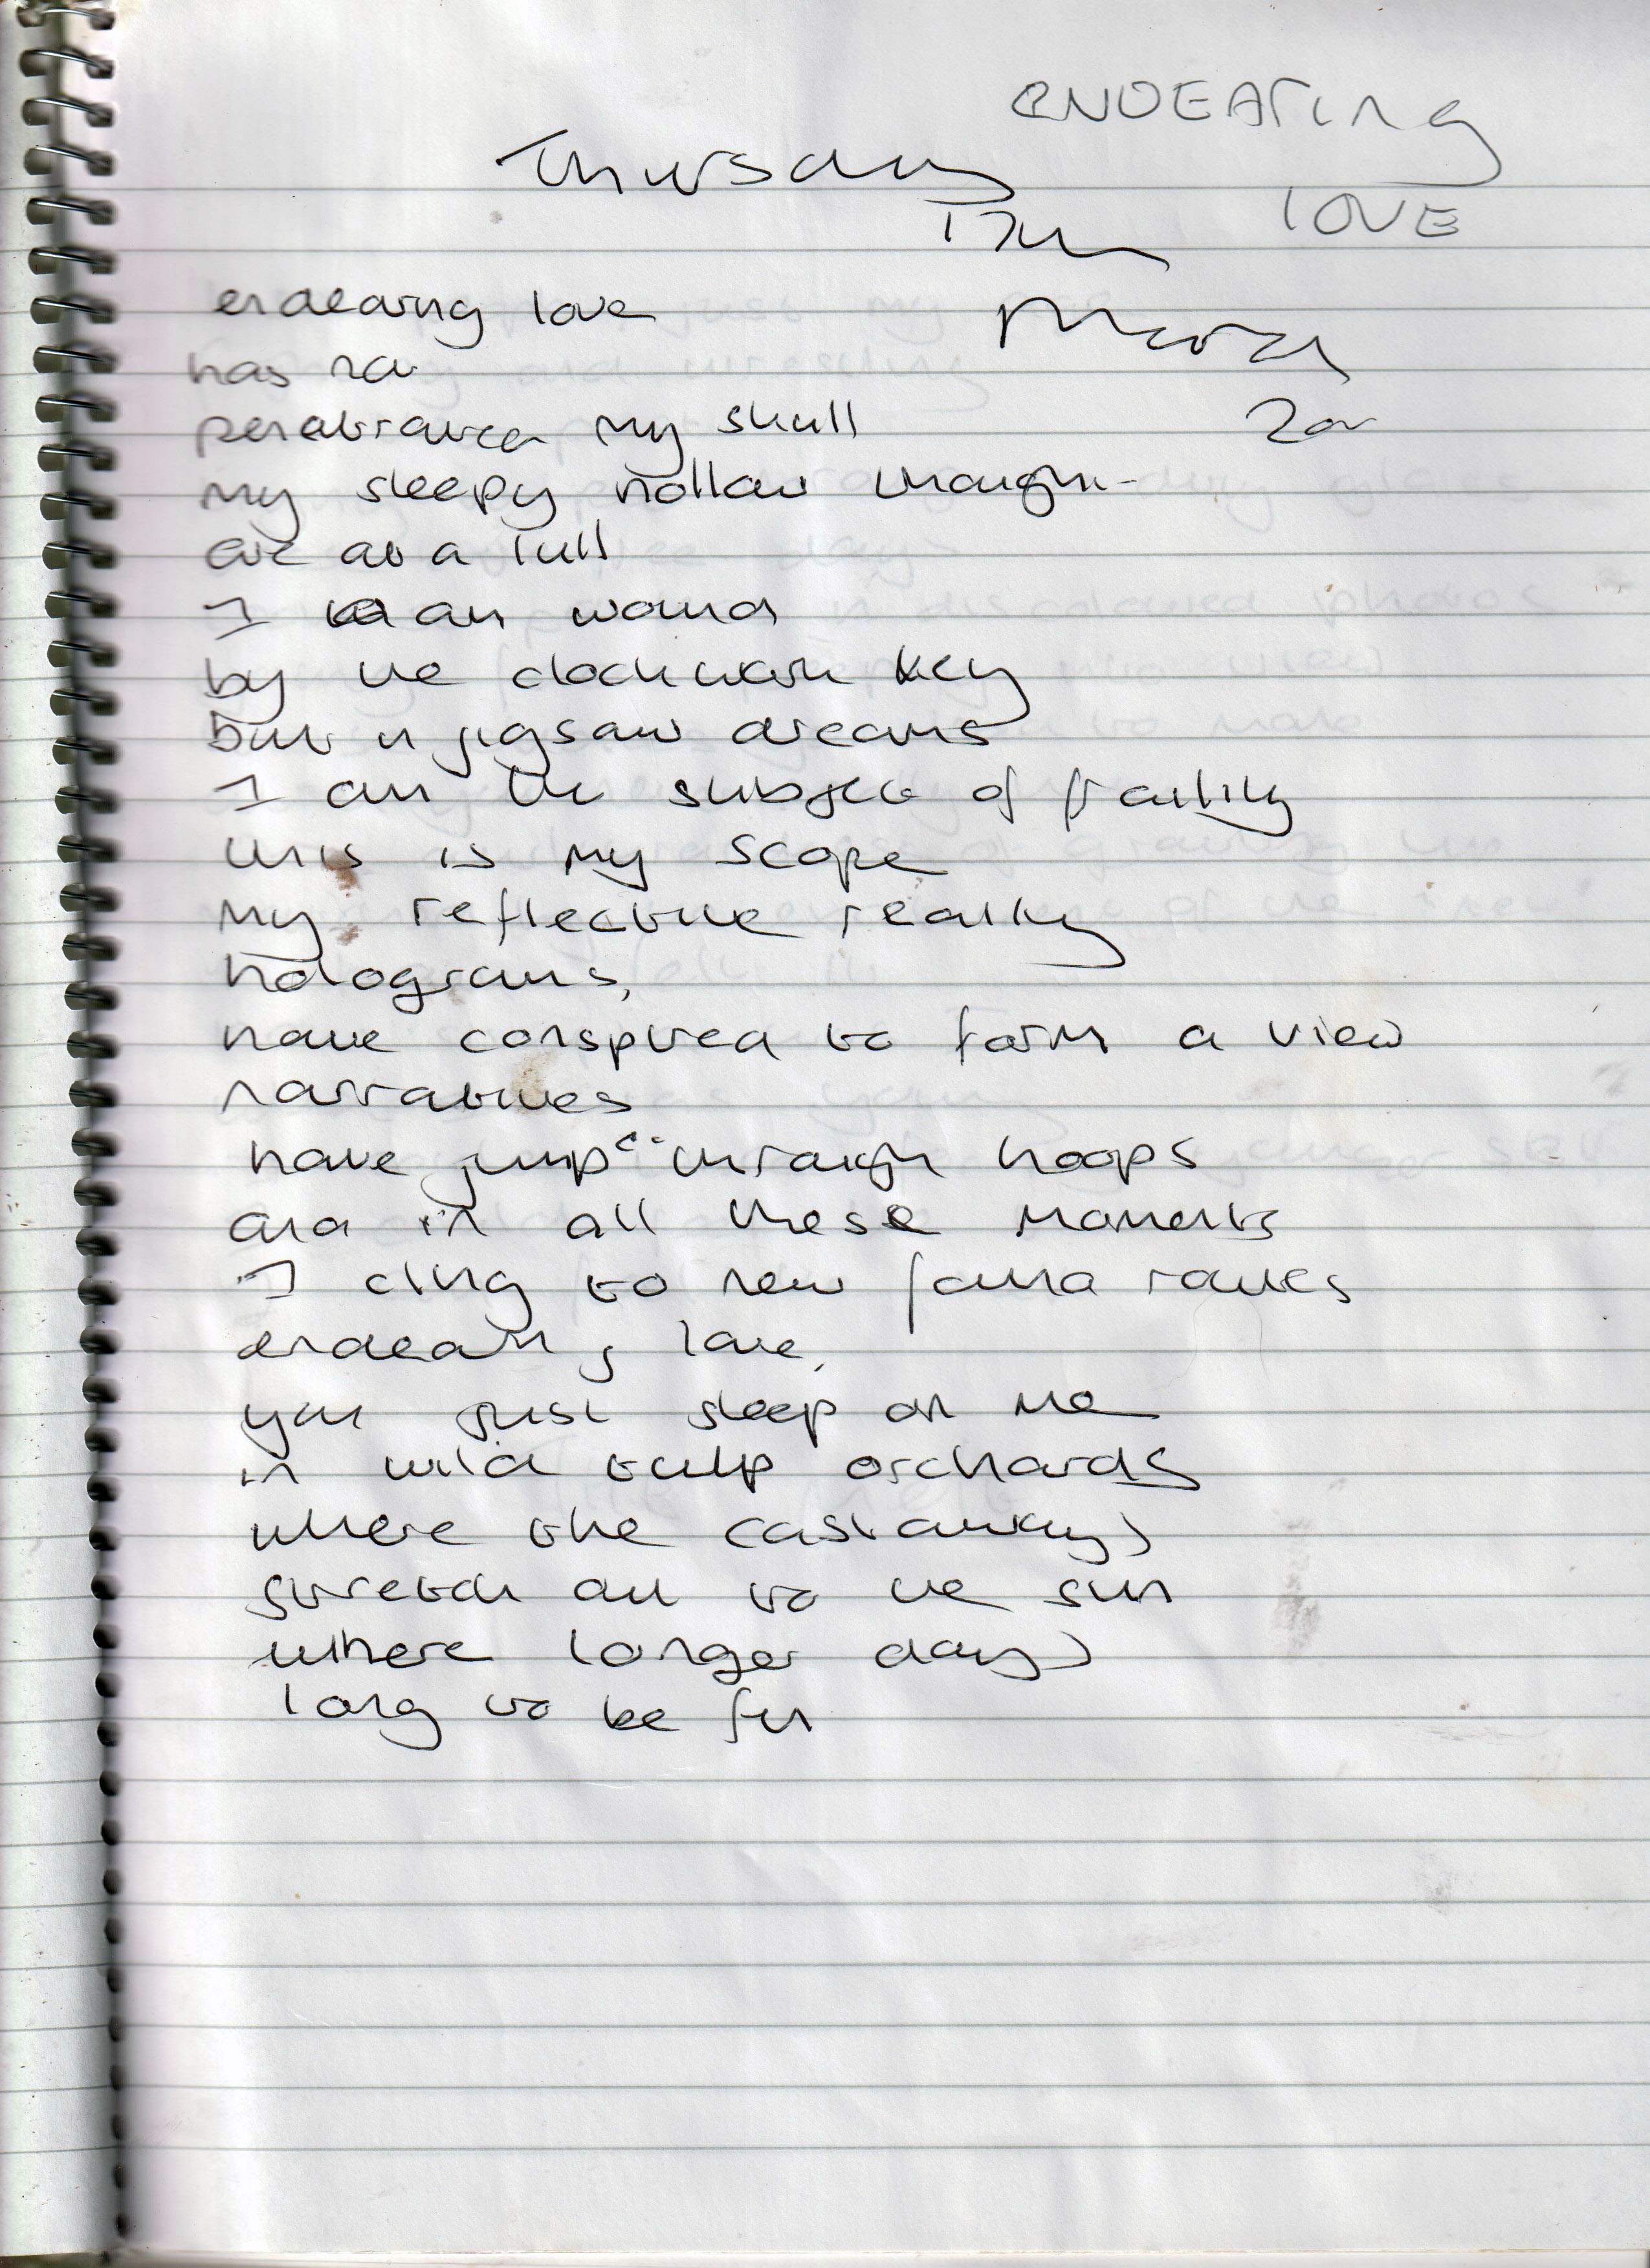 ENDEARing
LOVE
Thursday
17th
March
endearing love
has not
penetrated my skull
my sleepy hollow thought
are at a lull
I am wound
by the clockwork key
but in jigsaw dreams
I am the subject of frailty
this is my scope
my reflective really
holograms,
have conspired to form a view
narratives
have jumped through hoops
and in all these moments
I cling to new found routes
endearing love,
you just sleep on me
in wild tulip orchards
where the castaways
stretch out to the sun
where longer days
long to be fun